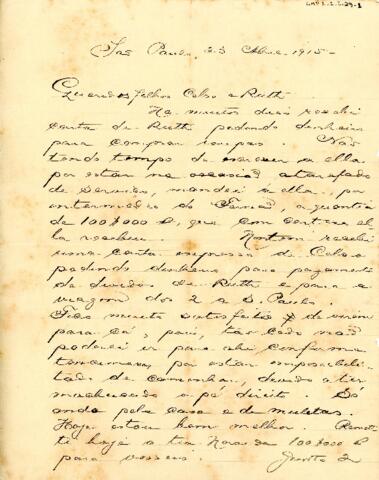 São Paulo, 23 Abril 1915
Queridos filhos Celso e Ruth
Ha muitos dias recebi
carta de Ruth pedindo dinheiro
para comprar roupas. Não
tendo tempo de escrever a ella
por estar na occasião atarefado
de serviço, mandei a ella, por
intermedio do a quantia
de 100$000 rs, que com certeza el-
la recebeu. Hontem recebi
uma carta expressa de Celso
pedindo dinheiro para pagamento
de dividas de Ruth e para a
viagem dos 2 a S. Paulo.
Fico muito satisfeito de virem
para cá, pois, tão cedo não
poderei ir para ahi conforme
tencionava, por estar impossibili-
tado de caminhar, devido a ter
machucado o pé direito. Só
ando pela casa e de muletas.
Hoje estou bem melhor. Remet-
ti hoje a tia 100$000 rs
para vosseis.